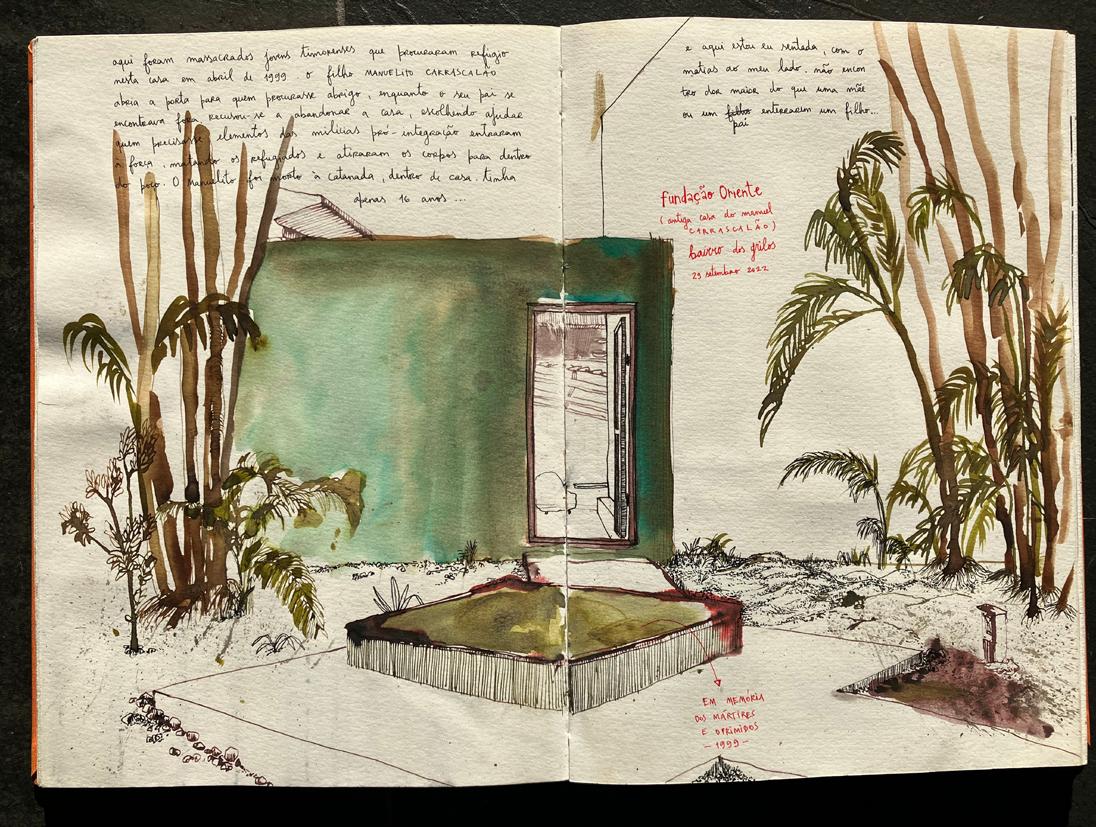 aqui foram massacrados jovens timorenses que procuraram refúgio
nesta casa em abril de 1999. o filho MANUELITO CARRASCALÃO
abria a porta para quem procurasse abrigo, enquanto o seu pai se
encontrava fora, recusou-se a abandonar a casa, escolhendo ajudar
quem precisasse. elementos das milícias pró-integração entraram
à força, matando os refugiados e atiraram os corpos para dentro
do poço. O Manuelito foi morto à catanada, dentro de casa. tinha
apenas 16 anos ...
e aqui estou eu sentada, com o
matias ao meu lado. não encon
tro dor maior do que uma mãe
ou um filho enterrarem um filho...
pai
fundação Oriente
(antiga casa do manuel
CARRASCALÃO)
bairro dos grilos
29 setembro 2022
EM MEMÓRIA
DOS MÁRTIRES
E OPRIMIDOS
- 1999 -